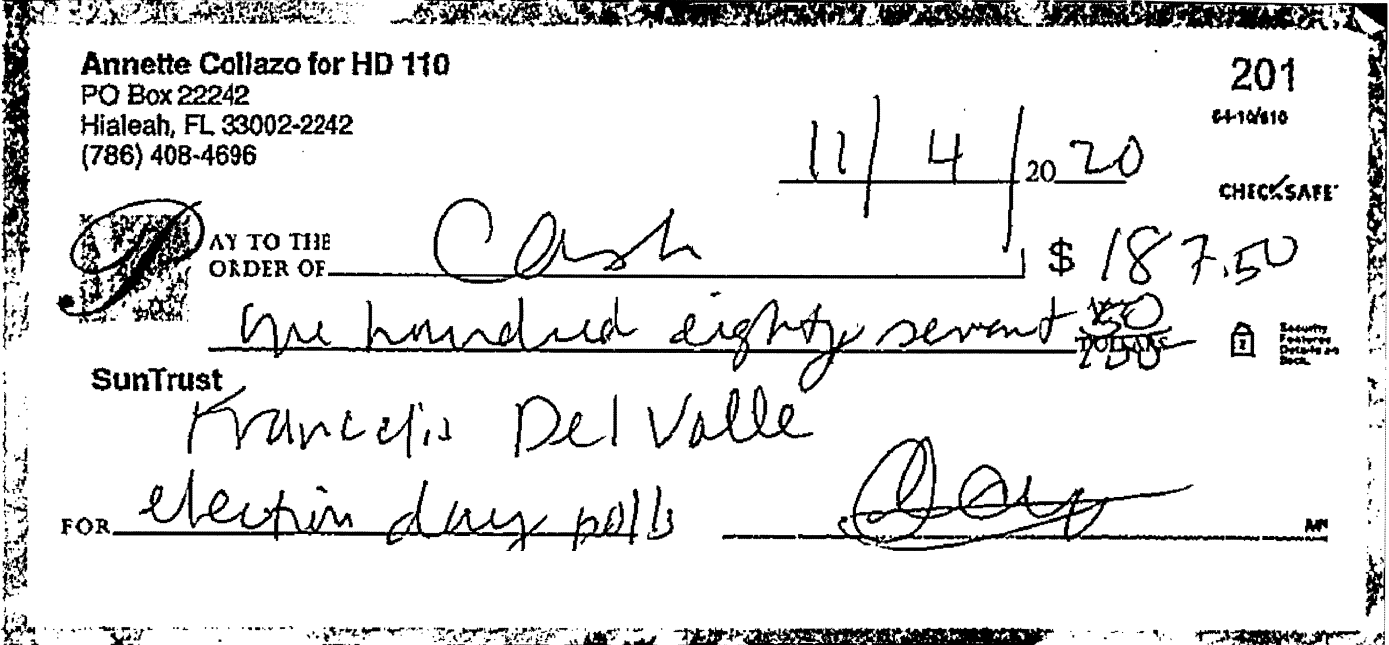 Annette Collazo for HD 110
PO Box 22242
Hialeah, FL 33002-2242
(786) 408-4696
201
64-10/610
11/4/2020
CHECKSAFE
PAY TO THE ORDER OF Cash $ 187.50
One hundred eighty seven + 50/100 DOLLARS
Security Features Details on Back.
SunTrust
Del Valle
FOR election day polls
MP